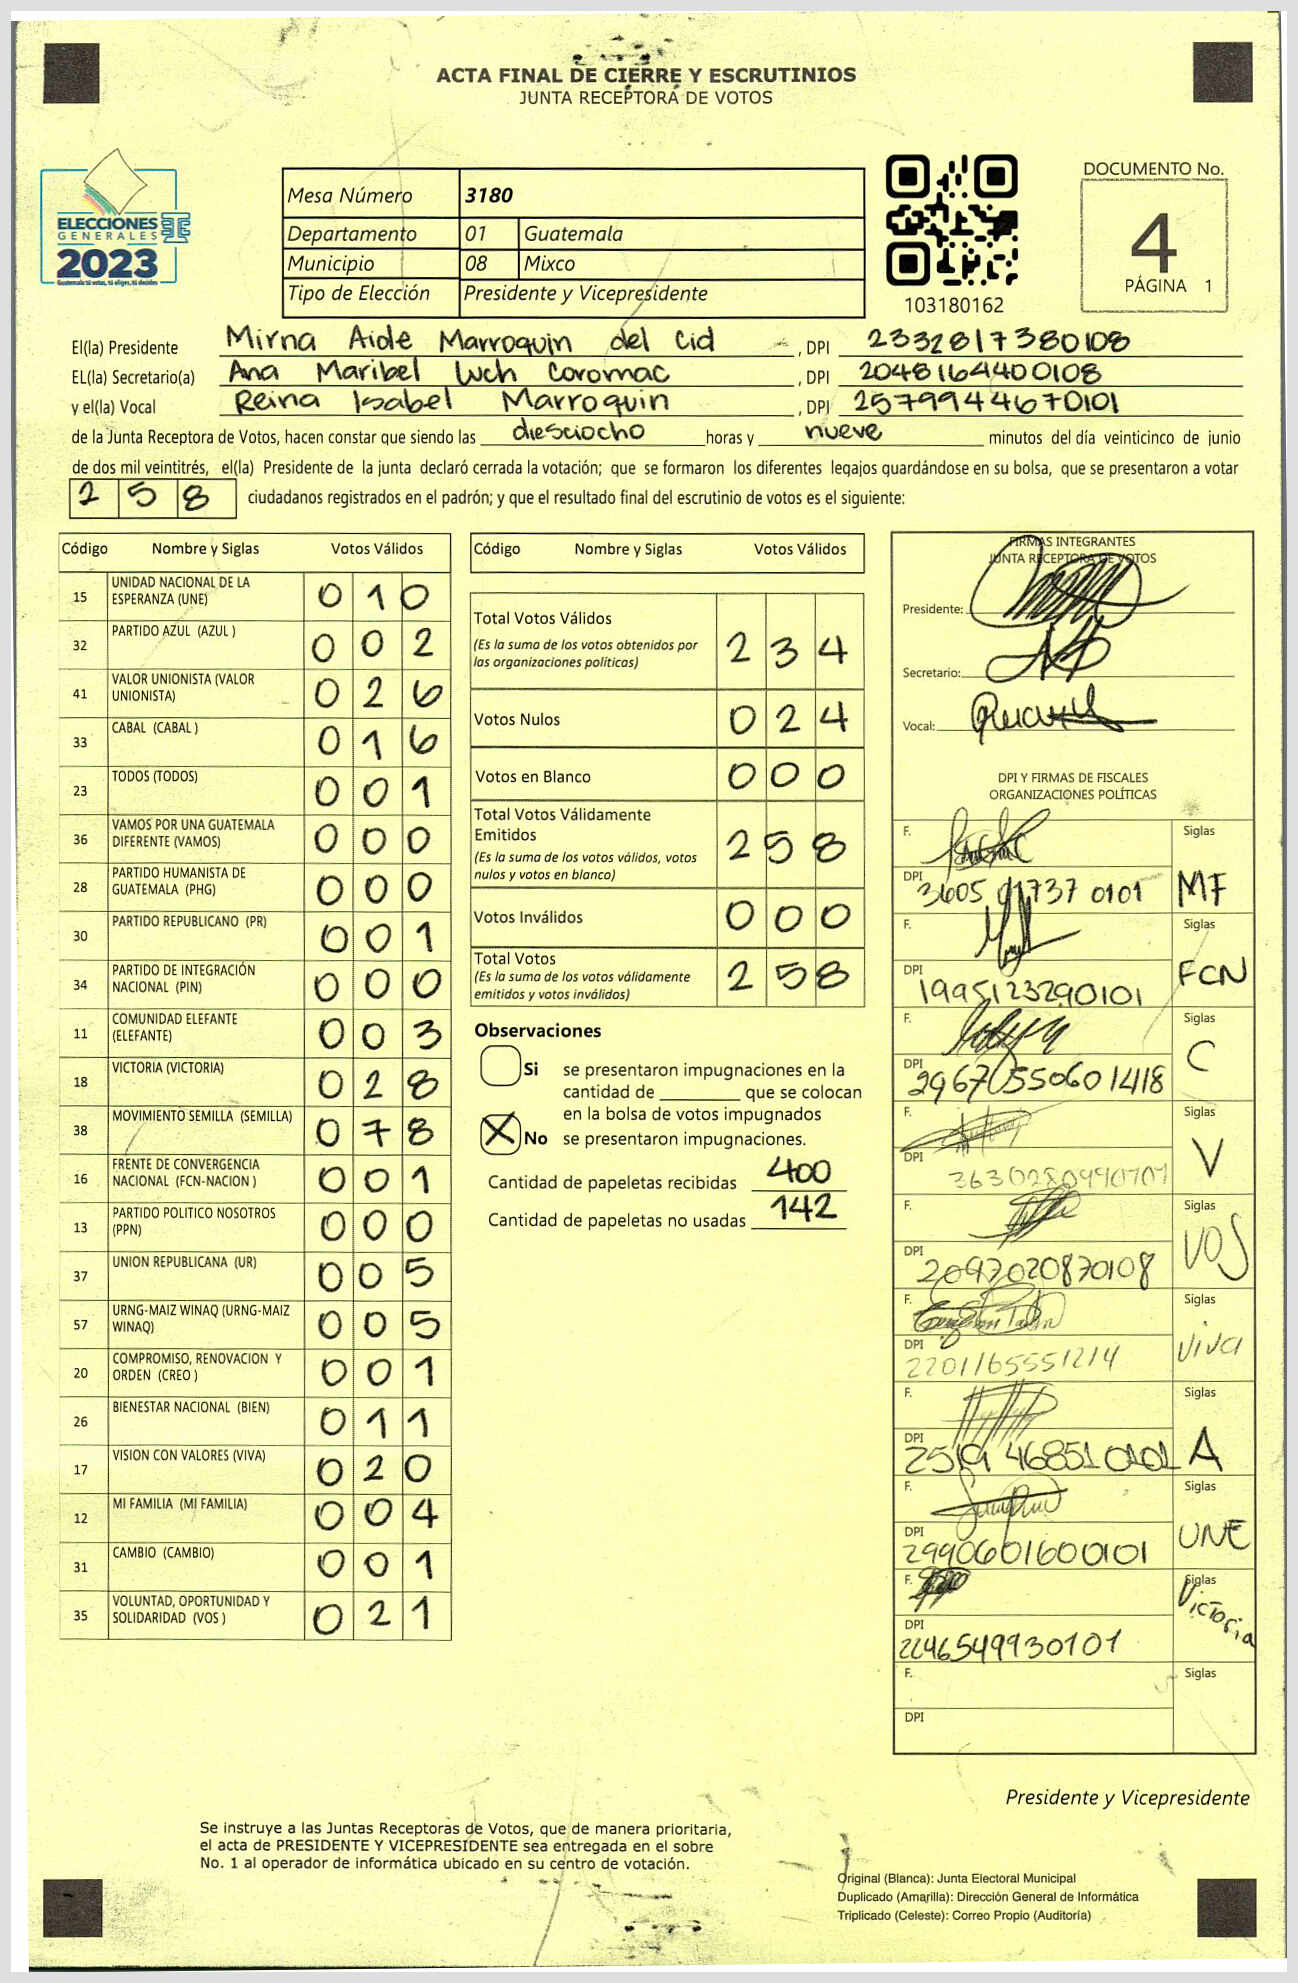 ACTA FINAL DE CIERRE Y ESCRUTINIOS
JUNTA RECEPTORA DE VOTOS
ELECCIONES
GENERALES
2023
Guatemala tú votas, tú eliges, tú decides
Mesa Número 3180
Departamento 01 Guatemala
Municipio 08 Mixco
Tipo de Elección Presidente y Vicepresidente
103180162
DOCUMENTO No.
4
PÁGINA 1
El(la) Presidente Mirna Aide Marroquin del Cid , DPI 2332817380108
EL(la) Secretario(a) Ana Maribel Coromac , DPI 2048164400108
y el(la) Vocal Reina Isabel Marroquin , DPI 2579944670101
de la Junta Receptora de Votos, hacen constar que siendo las diesciocho horas y nueve minutos del día veinticinco de junio
de dos mil veintitrés, el(la) Presidente de la junta declaró cerrada la votación; que se formaron los diferentes legajos guardándose en su bolsa, que se presentaron a votar
258 ciudadanos registrados en el padrón; y que el resultado final del escrutinio de votos es el siguiente:
Código Nombre y Siglas Votos Válidos
15 UNIDAD NACIONAL DE LA ESPERANZA (UNE) 010
32 PARTIDO AZUL (AZUL ) 002
41 VALOR UNIONISTA (VALOR UNIONISTA) 026
33 CABAL (CABAL ) 016
23 TODOS (TODOS) 001
36 VAMOS POR UNA GUATEMALA DIFERENTE (VAMOS) 000
28 PARTIDO HUMANISTA DE GUATEMALA (PHG) 000
30 PARTIDO REPUBLICANO (PR) 001
34 PARTIDO DE INTEGRACIÓN NACIONAL (PIN) 000
11 COMUNIDAD ELEFANTE (ELEFANTE) 003
18 VICTORIA (VICTORIA) 028
38 MOVIMIENTO SEMILLA (SEMILLA) 078
16 FRENTE DE CONVERGENCIA NACIONAL (FCN-NACION ) 001
13 PARTIDO POLITICO NOSOTROS (PPN) 000
37 UNION REPUBLICANA (UR) 005
57 URNG-MAIZ WINAQ (URNG-MAIZ WINAQ) 005
20 COMPROMISO, RENOVACION Y ORDEN (CREO ) 001
26 BIENESTAR NACIONAL (BIEN) 011
17 VISION CON VALORES (VIVA) 020
12 MI FAMILIA (MI FAMILIA) 004
31 CAMBIO (CAMBIO) 001
35 VOLUNTAD, OPORTUNIDAD Y SOLIDARIDAD (VOS ) 021
Código Nombre y Siglas Votos Válidos
Total Votos Válidos 234
(Es la suma de los votos obtenidos por
las organizaciones políticas)
Votos Nulos 024
Votos en Blanco 000
Total Votos Válidamente
Emitidos 258
(Es la suma de los votos válidos, votos
nulos y votos en blanco)
Votos Inválidos 000
Total Votos 258
(Es la suma de los votos válidamente
emitidos y votos inválidos)
Observaciones
Si se presentaron impugnaciones en la
cantidad de ________ que se colocan
en la bolsa de votos impugnados
X No se presentaron impugnaciones.
Cantidad de papeletas recibidas 400
Cantidad de papeletas no usadas 142
FIRMAS INTEGRANTES
JUNTA RECEPTORA DE VOTOS
Presidente:
Secretario:
Vocal:
DPI Y FIRMAS DE FISCALES
ORGANIZACIONES POLÍTICAS
F. Siglas
DPI 0101 MF
F. Siglas
DPI 1995123290101 FCN
F. Siglas
DPI C
F. Siglas
DPI V
F. Siglas
DPI 2097020870108 VOS
F. Siglas
DPI 2201165551214 VIVA
F. Siglas
DPI A
F. Siglas
DPI 2990601600101 UNE
F. Siglas
DPI 2246549930101 Victoria
F. Siglas
DPI
Presidente y Vicepresidente
Se instruye a las Juntas Receptoras de Votos, que de manera prioritaria,
el acta de PRESIDENTE Y VICEPRESIDENTE sea entregada en el sobre
No. 1 al operador de informática ubicado en su centro de votación.
Original (Blanca): Junta Electoral Municipal
Duplicado (Amarilla): Dirección General de Informática
Triplicado (Celeste): Correo Propio (Auditoría)